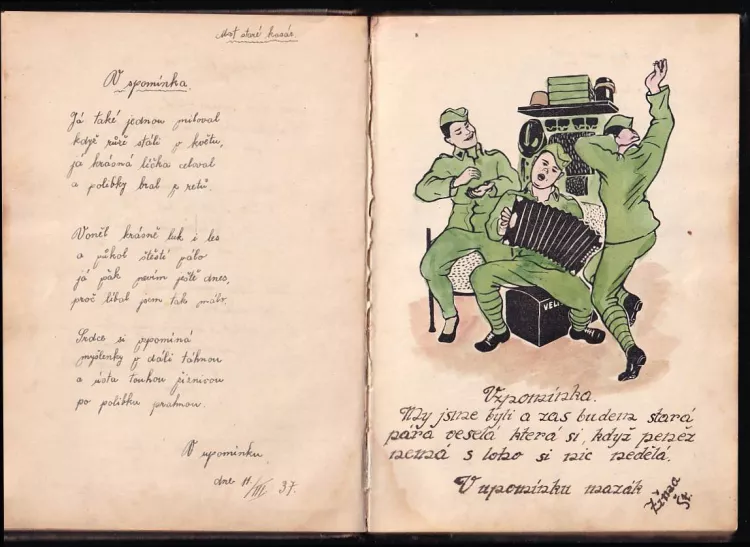 Most staré kasár.
Vspomínka
Já také jednou miloval
když růže stáli v květu,
já krásná líčka celoval
a polibky bral z retů.
Voněl krásně luk i les
a půkol štěstí pálo
já pák nevím ještě dnes,
proč líbal jsem tak málo.
Srdce si vzpomíná
myšlenky v dáli táhnou
a ústa touhou žíznivou
po polibku prahnou.
V upomínku
dne 11/III 37.
VEL
Vzpomínka.
My jsme byli a zas budem stará
pára veselá která si, když peněz
nemá s toho si nic nedělá.
V upomínku mazák
Zíma
Št.